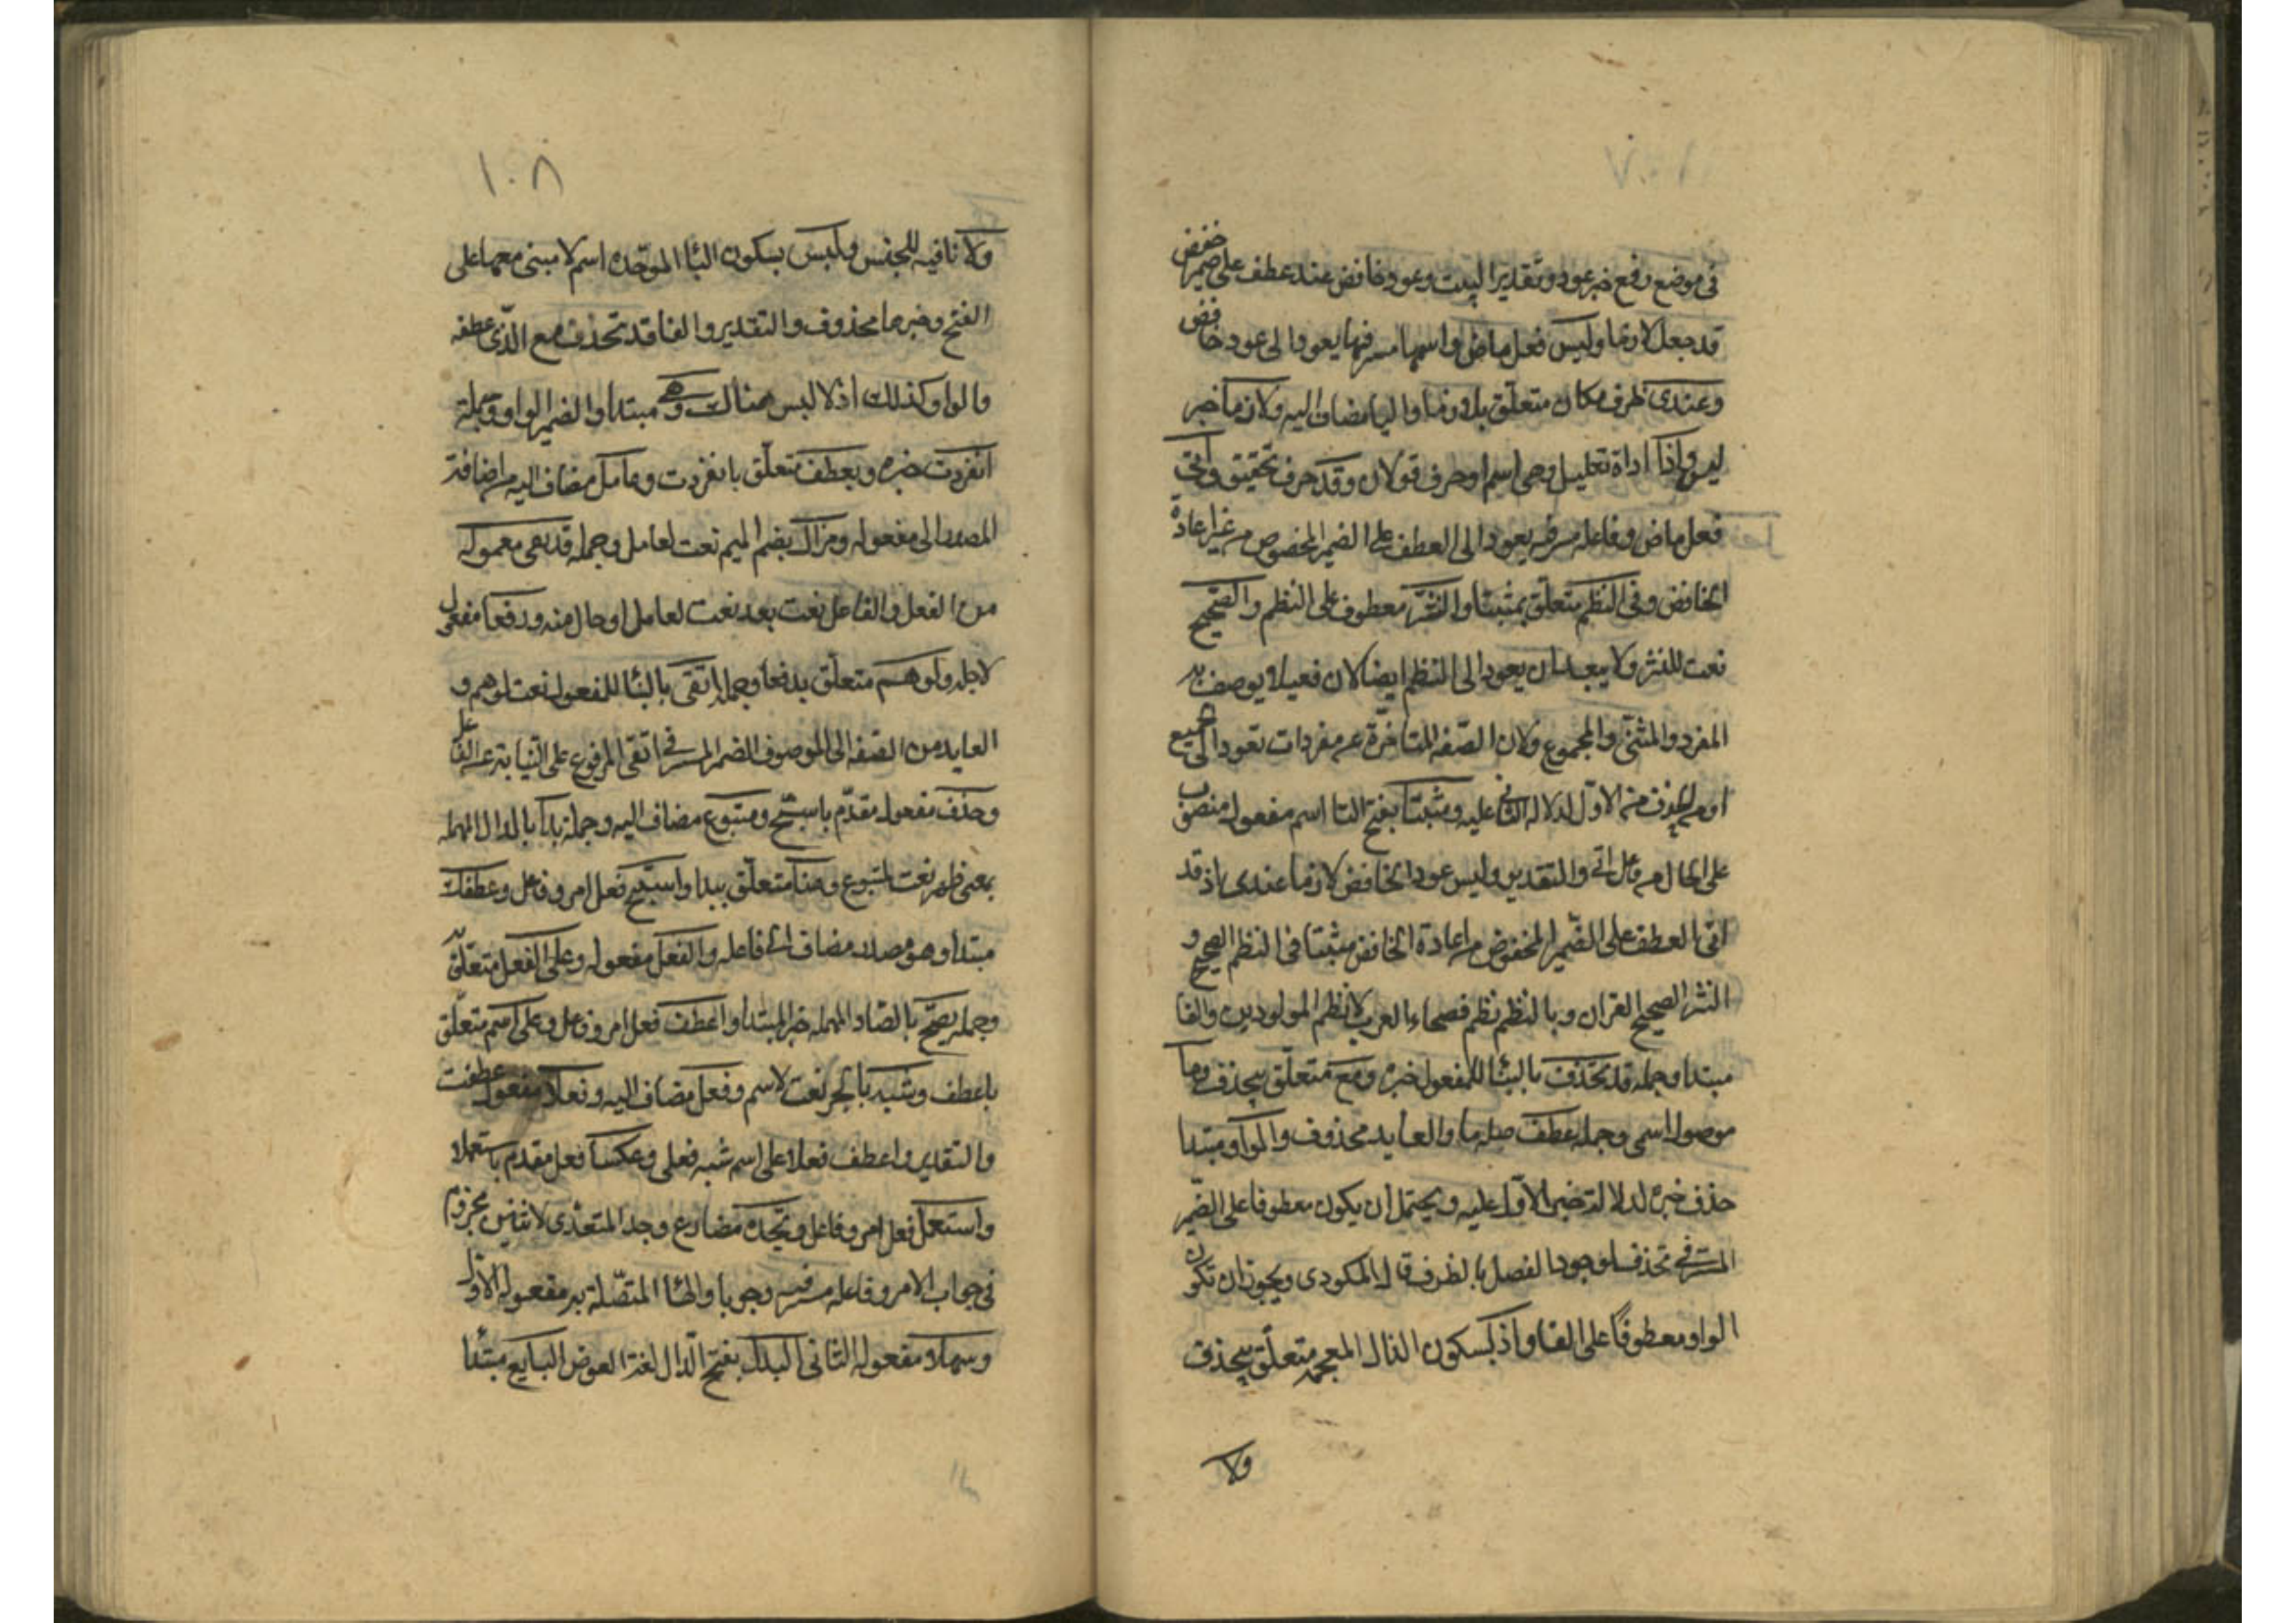 في موضع رفع خبر عود وتقدير البيت وعود خافض عند عطف على ضمير خفض
قد جعل لازما وليس فعل ماض واسمها مستتر فيها يعود الى عود خافض
وعندى ظرف مكان متعلق بلازما واليا مضاف اليه ولازما خبر
ليس واذا اداة تعليل وهي اسم او حرف قولان وقد حرف تحقيق واتى
فعل ماض وفاعله مستتر فيه يعود الى العطف على الضمير المخفوض من غير اعادة
الخافض وفى النظم متعلق بمثبتا والنثر معطوف على النظم والصحيح
نعت للنثر ولا يبعد ان يعود الى النظم ايضا لان فعيلا يوصف به
المفرد والمثنى والمجموع ولان الصفه المتاخرة عن مفردات تعود الى الجميع
او من الحذف من الاول لدلالة الثاني عليه ومثبتا بفتح التا اسم مفعول منصوب
على الحال من فاعل اتى والتقدير وليس عود الخافض لازما عندى اذ قد
اتى العطف على الضمير المخفوض من اعادة الخافض مثبتا فى النظم الصحيح و
النثر الصحيح القران وبالنظم نظم فصحاء العرب لا نظم المولودين والفا
مبتدا وجمله قد تحذف بالبنا للمفعول خبره ومع متعلق بيحذف وما
موصول اسمى وجمله عطفت صله ما والعايد محذوف والواو مبتدا
حذف خبره لدلالة خبر الاول عليه ويحتمل ان يكون معطوفا على الضمير
المستتر في تحذف لوجود الفصل بالظرف قال المكودى ويجوز ان تكون
الواو معطوفا على الفا واذ بسكون الذال المعجمه متعلق بيحذف
ولا
١٠٨
ولا نافيه للجنس ولبس بسكون البا الموحده اسم لا مبنى معها على
الفتح وخبرها محذوف والتقدير والفا قد تحذف مع الذى عطفه
والواو كذلك اذ لا لبس هنالك وهى مبتدا والضمير الواو وجملة
انفردت خبره وبعطف متعلق بانفردت وعامل مضاف اليه من اضافة
المصدر الى مفعوله ومزال بضم الميم نعت لعامل وجمله قد بقى معموله
من الفعل والفاعل نعت بعد نعت لعامل او حال منه ودفعا مفعول
لاجله ولوهم متعلق بدفعا وجمله اتقى بالبنا للمفعول نعت لوهم و
العايد من الصفه الى الموصوف الضمير المستتر في اتقى المرفوع على النيابة عن الفاعل
وحذف مفعول مقدم باستبح ومتبوع مضاف اليه وجملة بدا بالدال المهمله
بمعنى ظهر نعت لمتبوع وهنا متعلق ببدا واستبح فعل امر وفاعل وعطفك
مبتدا وهو مصدر مضاف الى فاعله والفعل مفعوله وعلى الفعل متعلق به
وجمله يصح بالصاد المهمله خبر المبتدا واعطف فعل امر وفاعل وعلى اسم متعلق
باعطف وشبه بالجر نعت لاسم وفعل مضاف اليه وفعلا مفعول عطفت
والتقدير واعطف فعلا على اسم شبه فعلى وعكسا فعل مقدم باستعملا
واستعمل فعل امر وفاعل وتجده مضارع وجد المتعدى لاثنين مجزوم
في جواب الامر وفاعله مستتر فيه وجوبا والها المتصلة به مفعوله الاول
وسهلا مفعوله الثانى البدل بفتح الدال لغة العوض التابع مبتدا